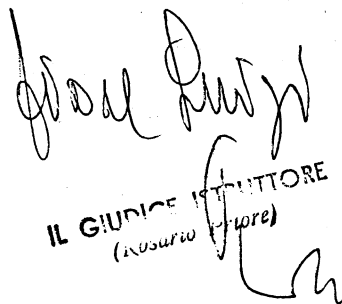 Luigi
IL GIUDICE ISTRUTTORE
(Rosario Priore)